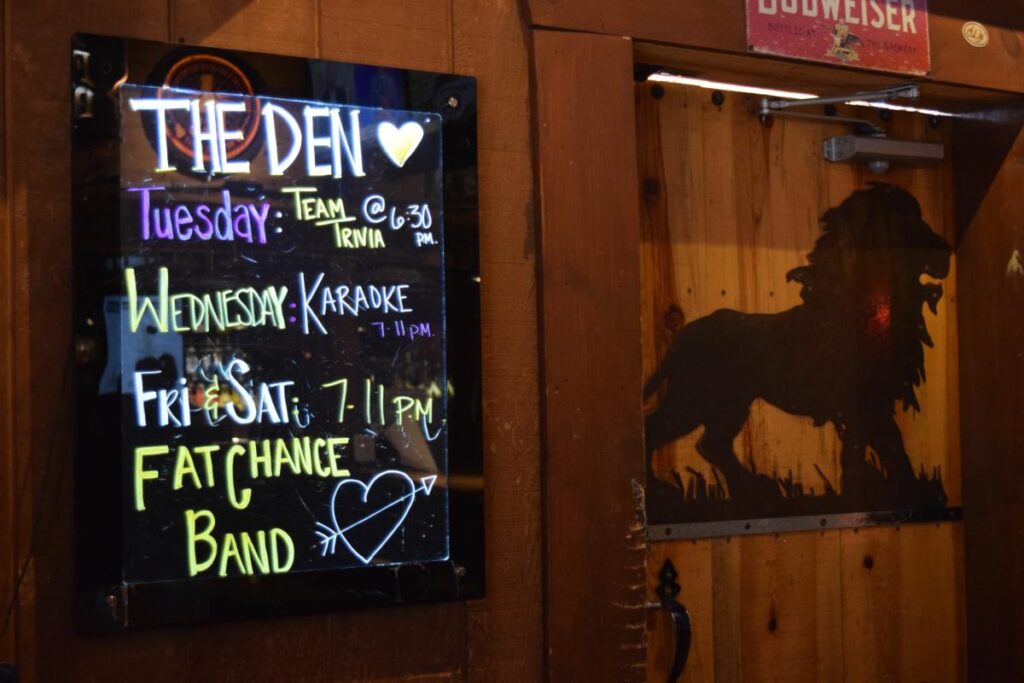 THE DEN
Tuesday: TEAM TRIVIA @ 6:30 PM.
WEDNESDAY: KARAOKE
7-11 P.M.
FRI & SAT: 7-11 P.M
FAT CHANCE
BAND
BUDWEISER
BOTTLED AT THE BREWERY